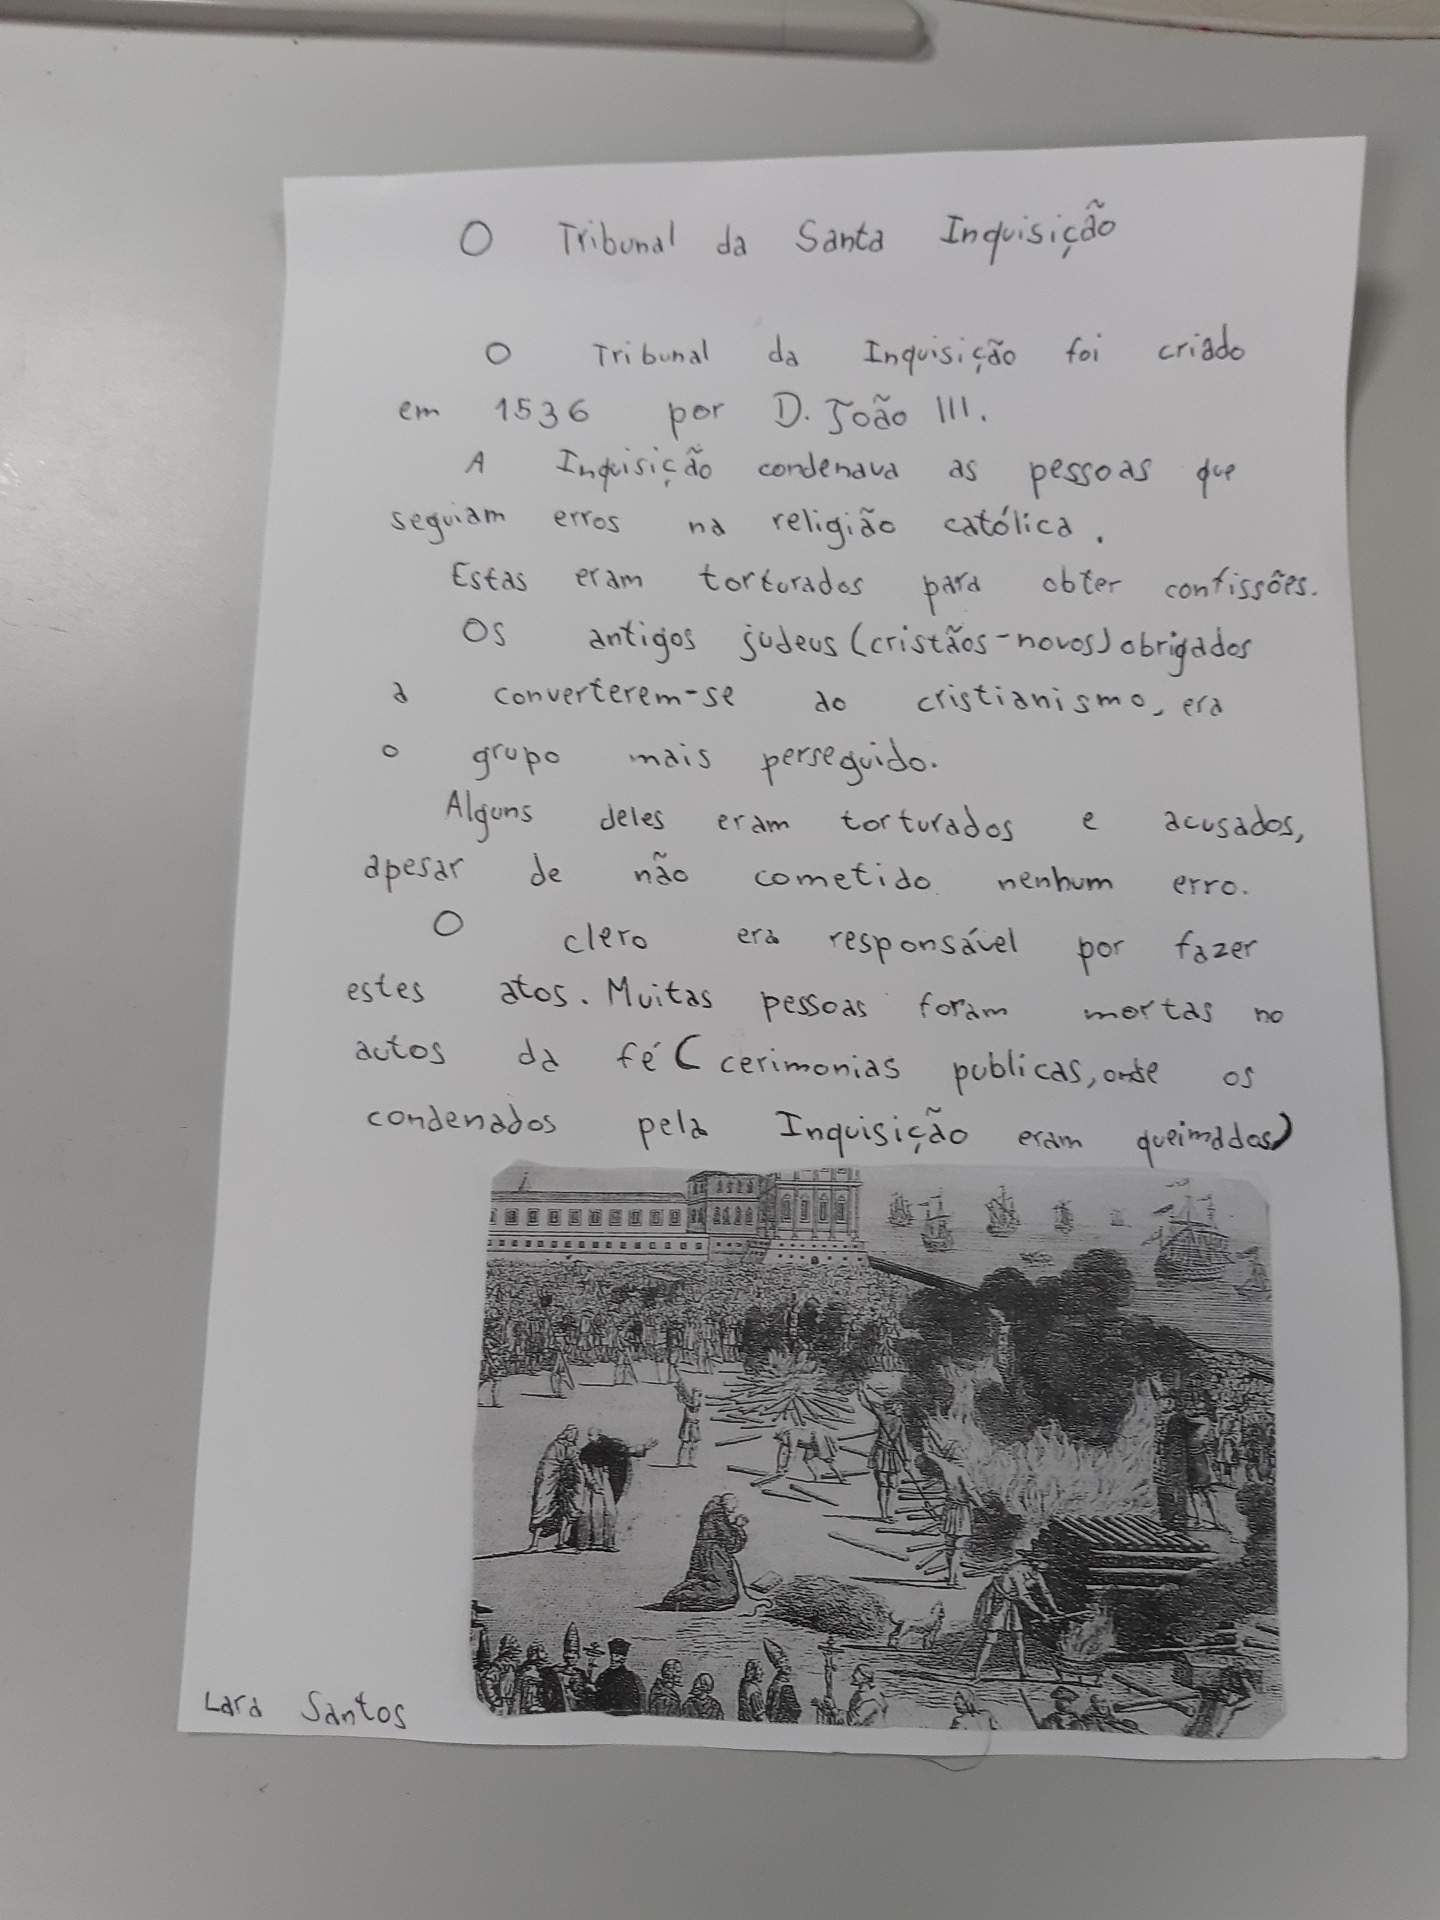 O Tribunal da Santa Inquisição
O Tribunal da Inquisição foi criado
em 1536 por D. João III.
A Inquisição condenava as pessoas que
seguiam erros na religião católica.
Estas eram torturados para obter confissões.
Os antigos judeus (cristãos-novos) obrigados
a converterem-se ao cristianismo, era
o grupo mais perseguido.
Alguns deles eram torturados e acusados,
apesar de não cometido nenhum erro.
O clero era responsável por fazer
estes atos. Muitas pessoas foram mortas no
autos da fé (cerimonias publicas, onde os
condenados pela Inquisição eram queimados)
Lara Santos